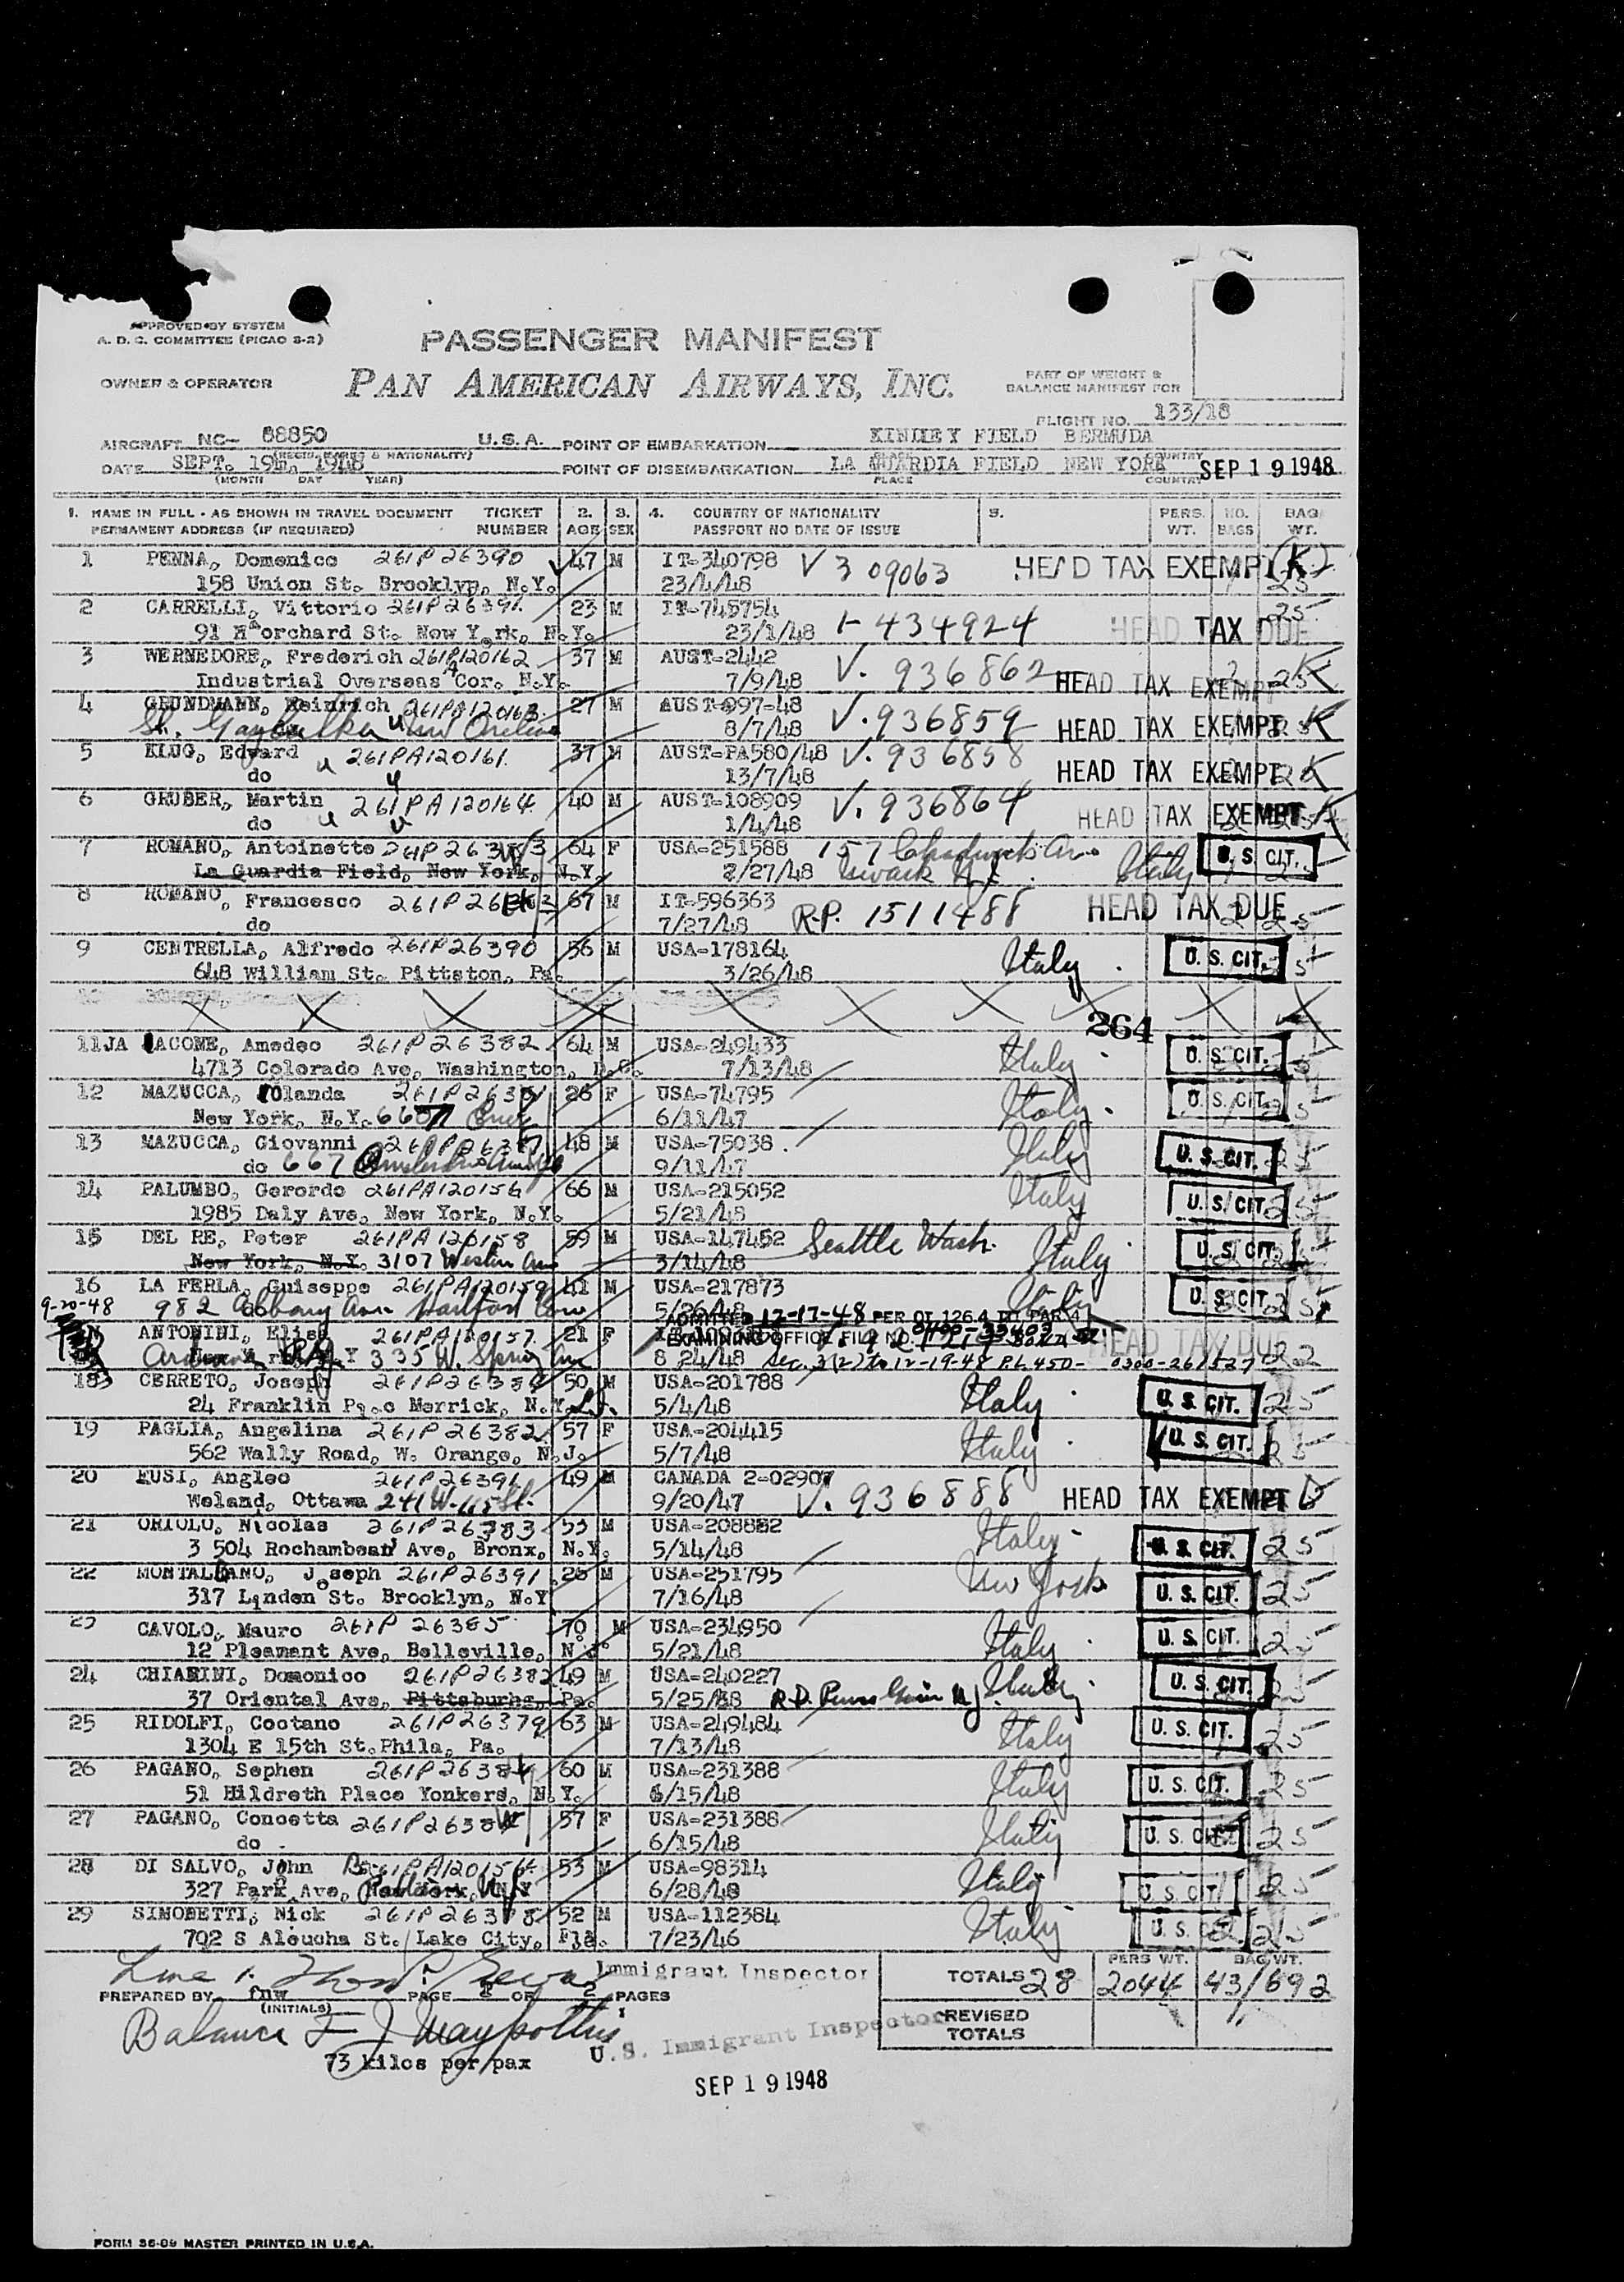 APPROVED BY SYSTEM
A. D. C. COMMITTEE (PICAO 3-2)
PASSENGER MANIFEST
OWNER & OPERATOR
PAN AMERICAN AIRWAYS, INC.
PART OF WEIGHT &
BALANCE MANIFEST FOR
FLIGHT NO. 133/18
AIRCRAFT NC- 88850 U.S.A. POINT OF EMBARKATION KINDLEY FIELD BERMUDA
DATE SEPT. 19th, 1948 POINT OF DISEMBARKATION LA GUARDIA FIELD NEW YORK SEP 19 1948
(MONTH DAY YEAR) PLACE COUNTRY
1. NAME IN FULL - AS SHOWN IN TRAVEL DOCUMENT TICKET 2. 3. 4. COUNTRY OF NATIONALITY 5. PERS. NO. BAG
PERMANENT ADDRESS (IF REQUIRED) NUMBER AGE SEX PASSPORT NO DATE OF ISSUE WT. BAGS WT.
1 PENNA, Domenico 261P26390 47 M IT-340798 V 309063 HEAD TAX EXEMPT (K)
158 Union St. Brooklyn, N.Y. 23/4/48 25
2 CARRELLI, Vittorio 261P26391 23 M IT-745754 25
91 orchard St. New York, N.Y. 23/1/48 434924 HEAD TAX DUE
3 WERNEDORF, Frederich 261PA120162 37 M AUST-2442 V. 936862
Industrial Overseas Cor. N.Y. 7/9/48 HEAD TAX EXEMPT 25 K
4 GRUNDMANN, Heinrich 261PA120163 27 M AUST-997-48 V. 936859
8/7/48 HEAD TAX EXEMPT K
5 KLUG, Edward 261PA120161 37 M AUST-PA580/48 V. 936858
do 13/7/48 HEAD TAX EXEMPT K
6 GRUBER, Martin 261PA120164 40 M AUST-108909 V. 936864
do 1/4/48 HEAD TAX EXEMPT K
7 ROMANO, Antoinette 64 F USA-251588 157 Chadwick Av. U. S. CIT.
La Guardia Field, New York, N.Y. 2/27/48 Newark N.J. Italy
8 ROMANO, Francesco 67 M IT-596363 HEAD TAX DUE
do 7/27/48 R.P. 1511488 25
9 CENTRELLA, Alfredo 261P26390 56 M USA-178164 Italy U. S. CIT. 25
648 William St. Pittston, Pa. 3/26/48
X X X X X X X X X X
264
11 JA ACOME, Amedeo 261P26382 64 M USA-249433 Italy U. S. CIT.
4713 Colorado Ave, Washington, D.C. 7/13/48
12 MAZUCCA, Yolanda 26 F USA-74795 Italy U. S. CIT. 25
New York, N.Y. 667 6/11/47
13 MAZUCCA, Giovanni 48 M USA-75038 Italy U. S. CIT. 25
do 667 Amsterdam Ave 9/11/47
14 PALUMBO, Gerordo 261PA120156 66 M USA-215052 Italy U. S. CIT. 25
1985 Daly Ave, New York, N.Y. 5/21/48
15 DEL RE, Peter 261PA120158 59 M USA-147452 Seattle Wash. Italy U. S. CIT.
New York, N.Y. 3107 Western Ave 3/14/48
16 LA FERLA, Guiseppe 261PA120159 41 M USA-217873 Italy U. S. CIT. 25
9-20-48 982 Albany Ave Hartford Conn 5/26/48 ADMITTED 12-17-48 PER OI 126.4
ANTONINI, Elisa 261PA120157 21 F EXAMINING OFFICE FILE NO. HEAD TAX DUE
335 W. Spring Ave 8 24/48 Sec. 3(2) to 12-19-48 P.L. 450- 0300-261527 22
18 CERRETO, Joseph 50 M USA-201788 Italy U. S. CIT. 25
24 Franklin P Merrick, N.Y. L.I. 5/4/48
19 PAGLIA, Angelina 261P26382 57 F USA-204415 Italy U. S. CIT. 25
562 Wally Road, W. Orange, N.J. 5/7/48
20 FUSI, Angleo 261P26391 49 M CANADA 2-02907
Weland, Ottawa 241 W. 115 St. 9/20/47 V. 936888 HEAD TAX EXEMPT
21 ORIOLO, Nicolas 261P26383 53 M USA-208882 Italy U. S. CIT. 25
3 504 Rochambean Ave, Bronx, N.Y. 5/14/48
22 MONTALBANO, Joseph 261P26391 26 M USA-251795 New York U. S. CIT. 25
317 Linden St. Brooklyn, N.Y 7/16/48
23 CAVOLO, Mauro 261P26385 70 M USA-234950 Italy U. S. CIT. 25
12 Pleamant Ave, Belleville, N.J. 5/21/48
24 CHIARINI, Domonico 261P26382 49 M USA-240227 Italy U. S. CIT. 25
37 Oriental Ave, Pittsburhg, Pa. 5/25/48 R.D. Penns Grove N.J.
25 RIDOLFI, Cootano 261P26379 63 M USA-249484 Italy U. S. CIT. 25
1304 E 15th St. Phila, Pa. 7/13/48
26 PAGANO, Sephen 261P26384 60 M USA-231388 Italy U. S. CIT. 25
51 Hildreth Place Yonkers, N.Y. 6/15/48
27 PAGANO, Concetta 57 F USA-231388 Italy U. S. CIT. 25
do 6/15/48
28 DI SALVO, John 261PA120154 53 M USA-98314 Italy U. S. CIT. 25
327 Park Ave, 6/28/48
29 SIMONETTI, Nick 261P26378 52 M USA-112384 Italy U. S. CIT. 25
702 S Aleucha St. Lake City, Fla. 7/23/46
Immigrant Inspector TOTALS 28 PERS WT. 2044 BAG WT. 43/692
PREPARED BY fnw PAGE OF 2 PAGES
(INITIALS)
REVISED
TOTALS
Balance
73 kilos per pax U. S. Immigrant Inspector
SEP 19 1948
FORM 36-09 MASTER PRINTED IN U.S.A.